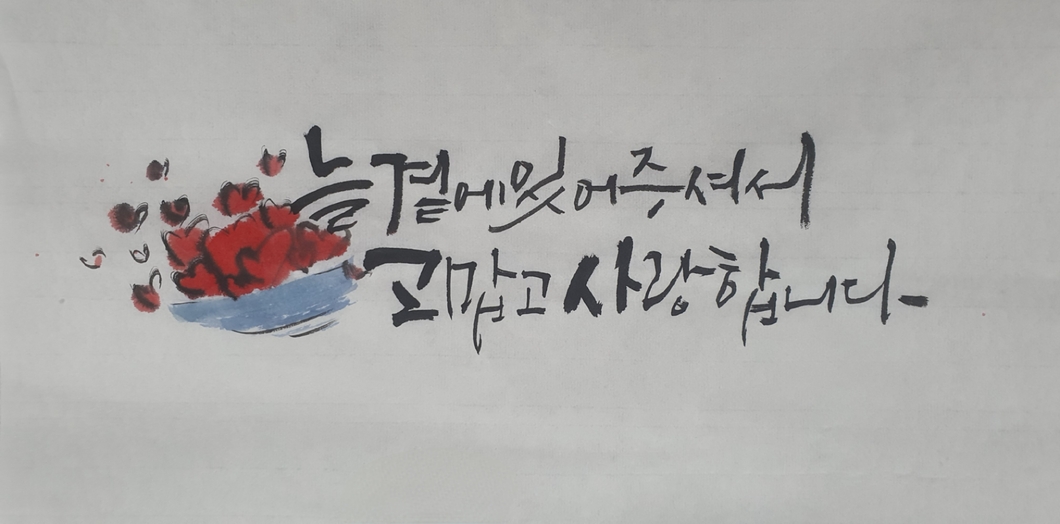 늘 곁에 있어 주셔서
고맙고 사랑합니다